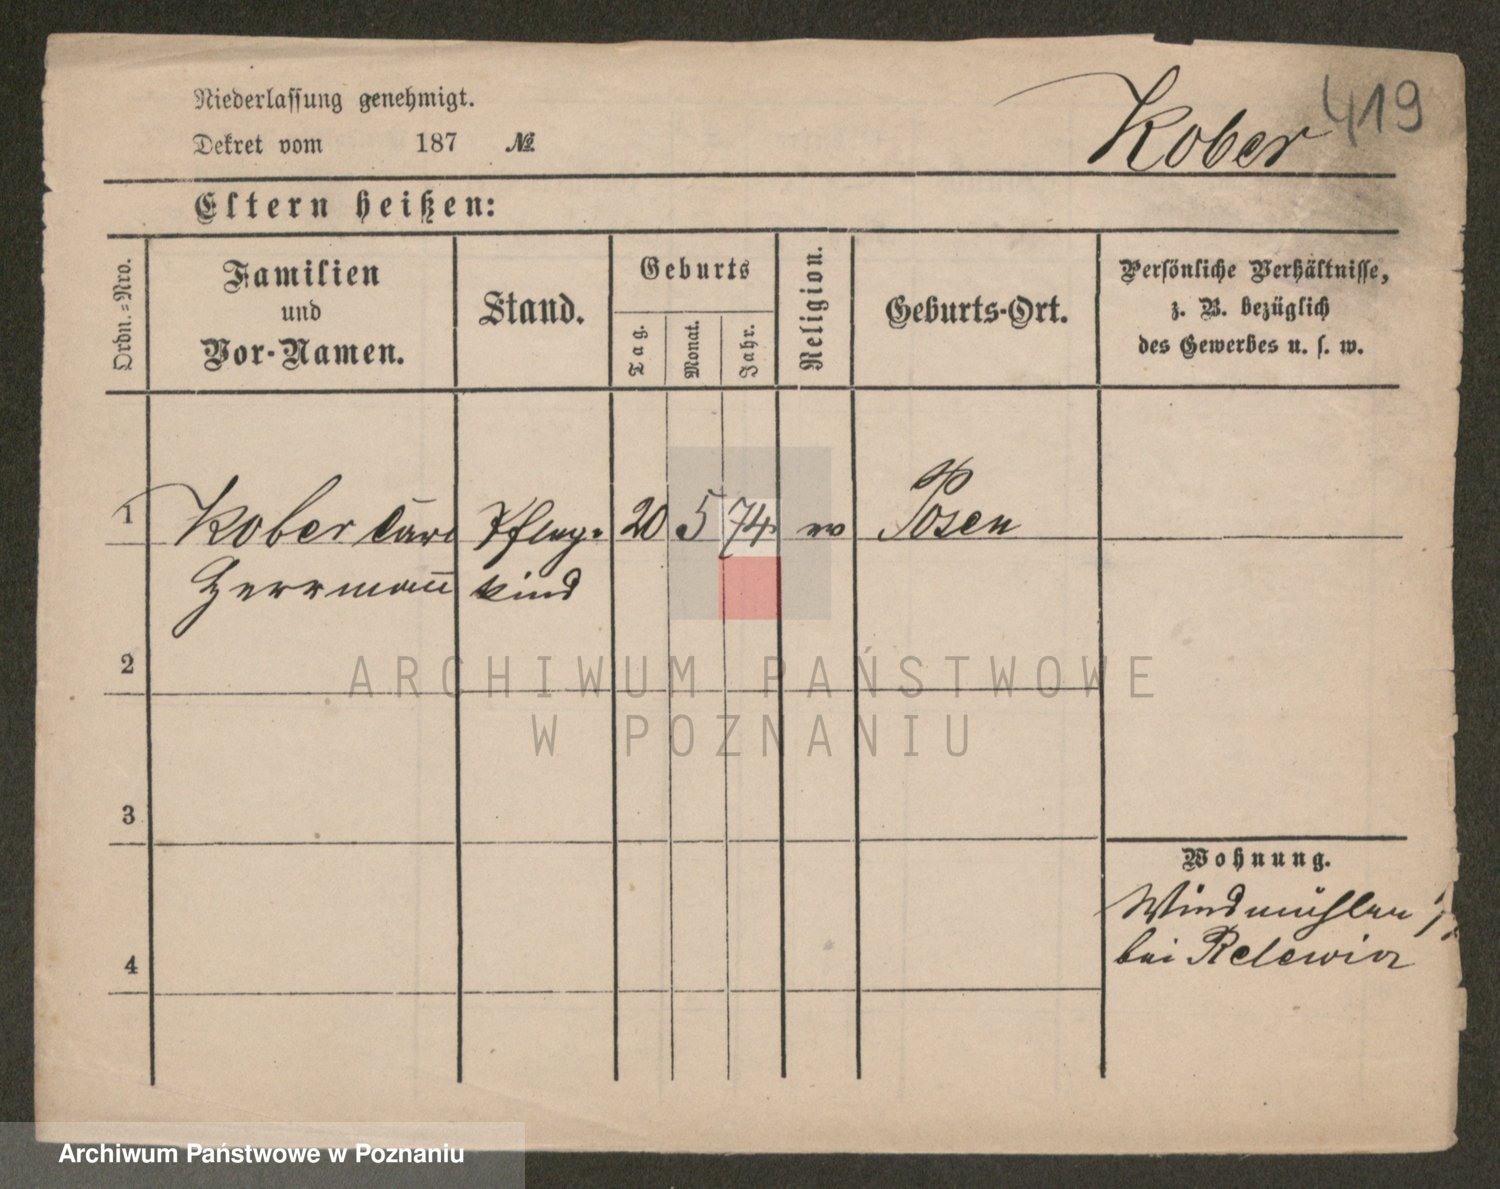 419
Kober
Niederlassung genehmigt.
Dekret vom 187 №
Eltern heißen:
Ordn.=Nro.
Familien
und
Vor-Namen.
Stand.
Geburts
Tag.
Monat.
Jahr.
Religion.
Geburts-Ort.
Persönliche Verhältnisse,
z. B. bezüglich
des Gewerbes u. s. w.
1 Kober Carl Pfleg= 20 5 74 ev Posen
Herrmann kind
2
3
4
Wohnung.
Windmühlen
bei
ARCHIWUM PAŃSTWOWE
W POZNANIU
Archiwum Państwowe w Poznaniu